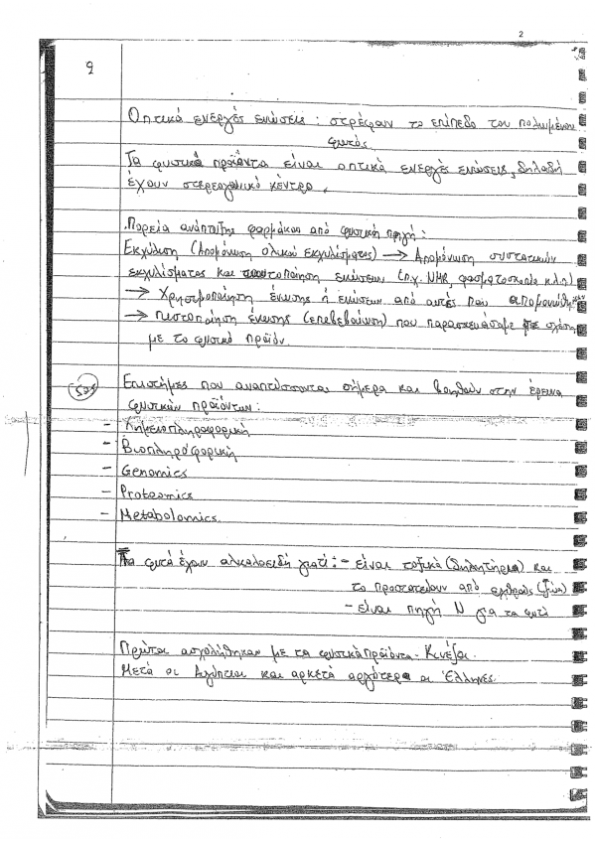 2
2
Οπτικά ενεργές ενώσεις: στρέφουν το επίπεδο του πολωμένου
φωτός.
Τα φυσικά προϊόντα είναι οπτικά ενεργές ενώσεις, δηλαδή
έχουν στερεογονικό κέντρο.
Πορεία ανάπτυξης φαρμάκου από φυσική πηγή:
Εκχύλιση (Απομόνωση ολικού εκχυλίσματος) → Απομόνωση συστατικών
εκχυλίσματος και ταυτοποίηση ενώσεων (π.χ. NMR, φασματοσκοπία κ.λπ)
→ Χρησιμοποίηση ένωσης ή ενώσεων από αυτές που απομονώθηκαν
→ Πιστοποίηση ένωσης (επιβεβαίωση) που παρασκευάσαμε σε σχέση
με το φυσικό προϊόν.
Επιστήμες που αναπτύσσονται σήμερα και βοηθούν στην έρευνα
φυσικών προϊόντων:
- Χημειοπληροφορική
- Βιοπληροφορική
- Genomics
- Proteomics
- Metabolomics.
Τα φυτά έχουν αλκαλοειδή γιατί: - είναι τοξικά (δηλητήρια) και
τα προστατεύουν από εχθρούς (ζώα)
- είναι πηγή N για τα φυτά
Πρώτοι ασχολήθηκαν με τα φυσικά προϊόντα - Κινέζοι.
Μετά οι Αιγύπτιοι και αρκετά αργότερα οι Έλληνες.